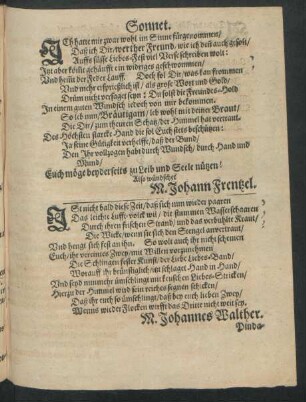 Sonnet.
ICh hatte mir zwar wohl im Sinne fürgenommen/
Daß ich Dir/ werther Freund/ wie ich deß auch gesoll/
Auffs süsse Liebes-Fest viel Verse schreiben wolt:
Int aber kömt gehäufft ein widriges geschwommen/
Und heißt der Feder Lauff. Doch sol Dir/ was kan frommen
Und mehr ersprießlich ist/ als große Wort und Gold/
Drüm nicht versaget seyn: Du solst die Freundes-Hold
In einem guten Wundsch iedoch von mir bekommen.
So leb nun/ Bräutigam/ leb wohl mit deiner Braut/
Die Dir/ zum theuren Schatz/ der Himmel hat vertraut.
Des Höchsten starcke Hand die sol Euch stets beschützen:
Ja seine Gütigkeit verhelffe/ daß der Bund/
Den Ihr vollzogen habt durch Wundsch/ durch Hand und
Mund/
Euch möge beyderseits zu Leib und Seele nützen!
Also wündschet
M. Johann Frentzel.
IST nicht bald diese Zeit/ daß sich nun wieder paaren
Das leichte Lufft-volck wil/ die stummen Wasserschaaren
Durch ihren frischen Strand/ und das verbuhlte Kraut/
Die Wicke/ wenn sie sich den Stengel anvertraut/
Und hengt sich fest an ihn. So wolt auch ihr nicht seumen
Euch/ ihr vereintes Zwey/ mit Willen vorzunehmen
Die Schlingen fester Kunst der Liebe Liebes-Band/
Worauff ihr brünstiglich nun schlaget Hand in Hand/
Und seyd nunmehr ümschlungt mit keuschen Liebes-Stricken/
Hierzu der Himmel wird sein reiches segnen schicken/
Daß ihr euch so ümschlingt/ daß bey euch lieben Zwey/
Wenns wieder Flocken wirfft das Dritte nicht weit sey.
M. Johannes Walther.
Pinda-